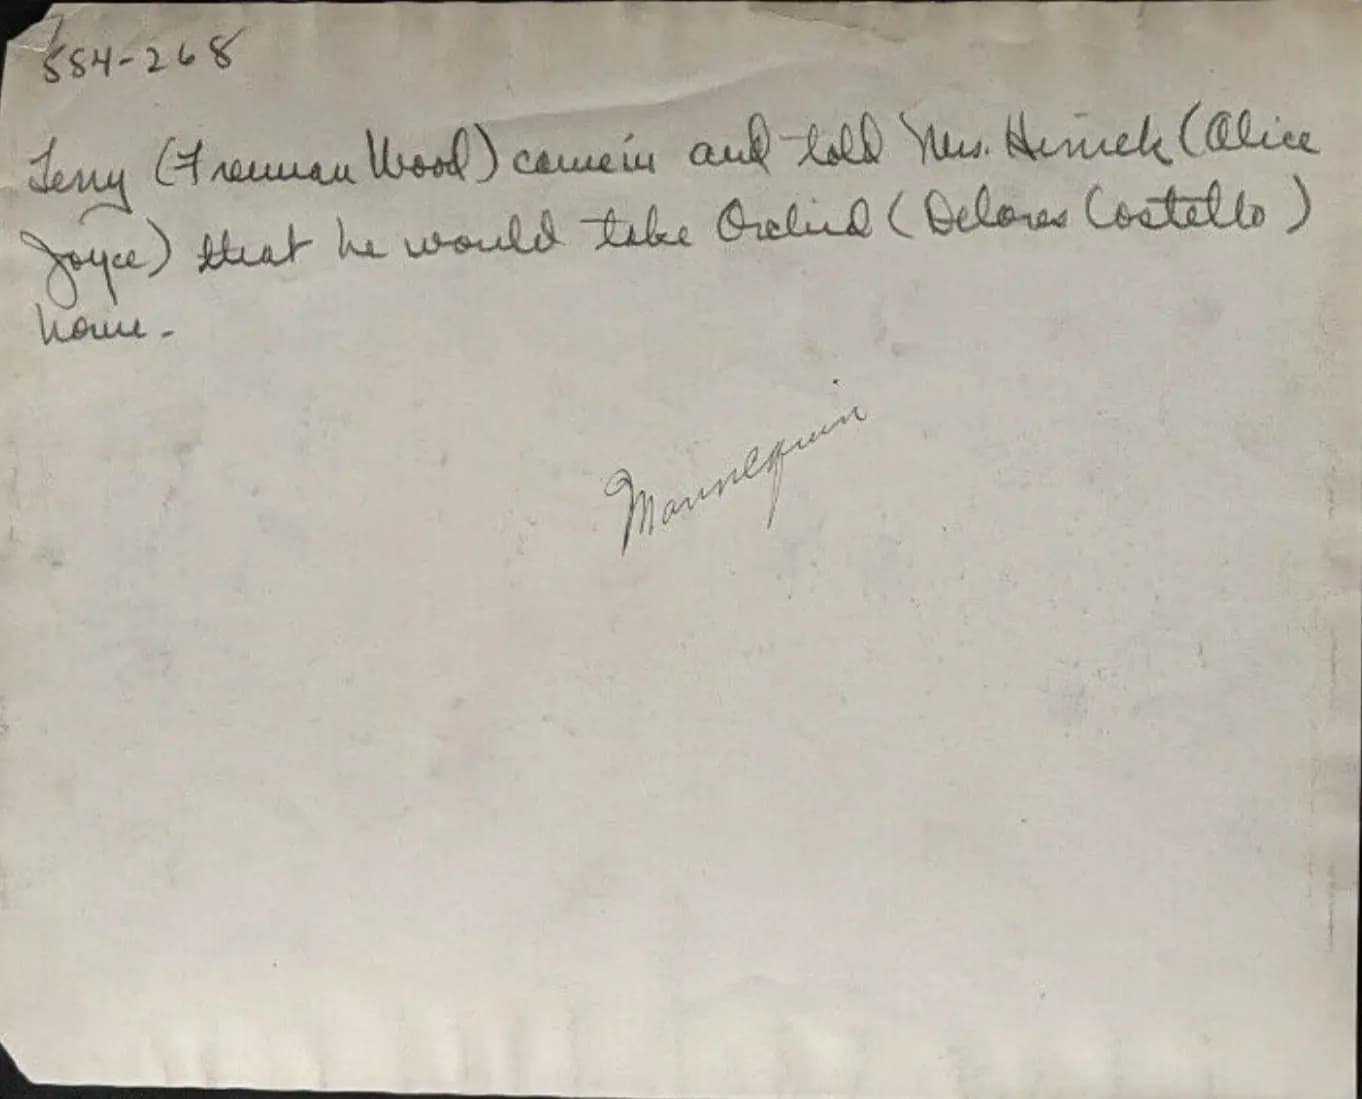 554-268
Terry (Freeman Wood) came in and told Mrs. Herrick (Alice
Joyce) that he would take Orchid (Delores Costello)
home-
Mannequin